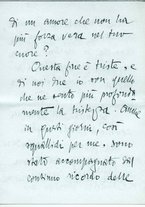 di un amore che non ha
più forza vera nel tuo
cuore?
Questa fine è triste, e
di noi due io son quello
che ne sento più profonda-
mente la tristezza. Come
in questi giorni, così
squallidi per me, sono
stato accompagnato dal
continuo ricordo delle